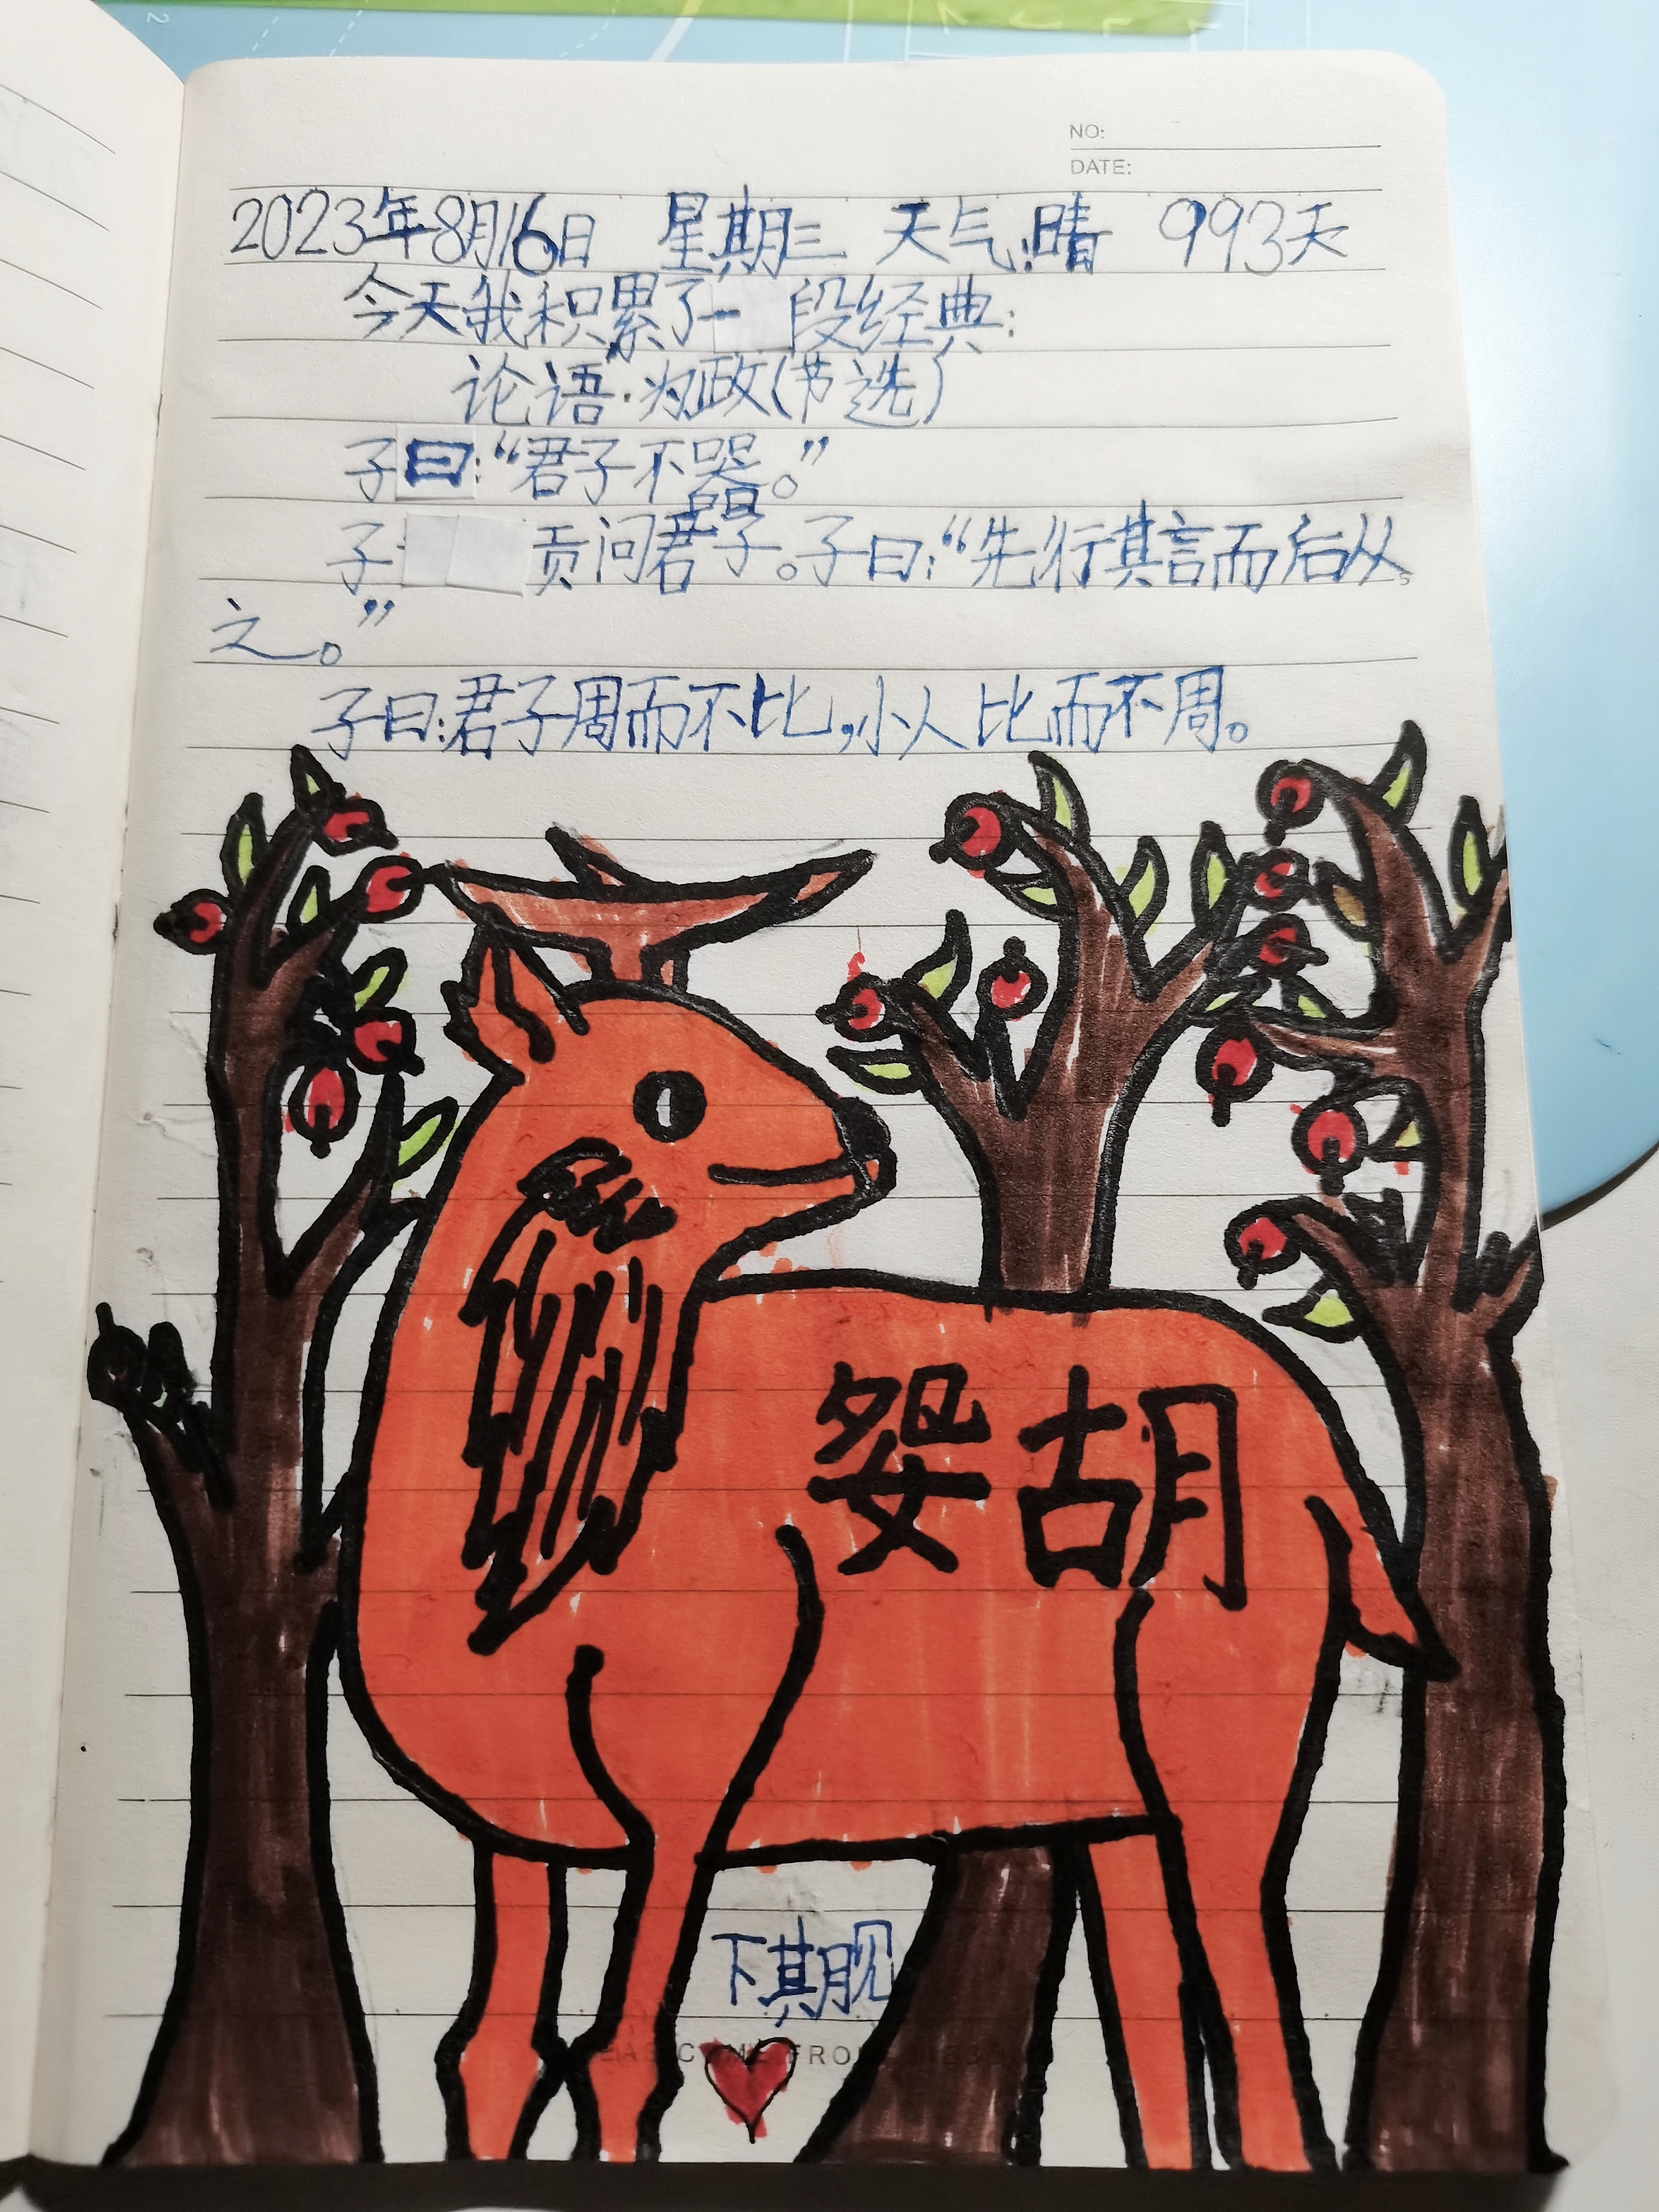 NO:
DATE:
2023年8月16日 星期三 天气:晴 993天
今天我积累了一段经典:
论语·为政(节选)
子曰:“君子不器。”
子贡问君子。子曰:“先行其言而后从
之。”
子曰:君子周而不比,小人比而不周。
妴胡
卞期舰
COME FROM